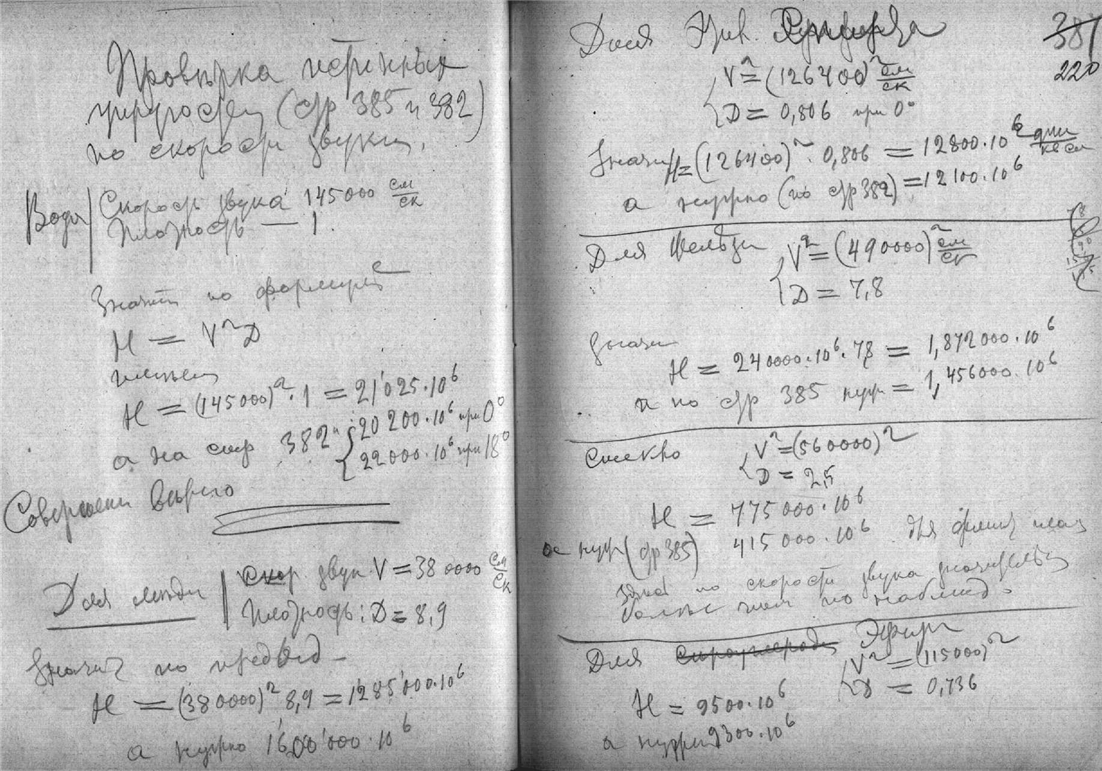 Провѣрка
(стр 385 и 382)
по скорости звука.
Вода
Скорость звука 145000 см/ск
Плотность — 1.
Значит по формулѣ
H = V²D
имѣем
H = (145000)² · 1 = 21'025·10⁶
а на стр 382
20 200·10⁶ при 0°
22000·10⁶ при 18°
Совершенно вѣрно
Для мѣди
звук V = 38 0000 см/ск
Плотность: D = 8,9
Значит по
H = (380000)² 8,9 = 1'285'000·10⁶
а нужно 1600'000·10⁶
381
220
Для
V² = (126400)² см/ск
D = 0,806 при 0°
Значит H = (126400)² · 0,806 = 12800·10⁶
а нужно (по стр 382) = 12100·10⁶
Для желѣза
V² = (490000)² см/ск
D = 7,8
Значит
H = 240000·10⁶·78 = 1,872000·10⁶
а по стр 385 нужн = 1,456000·10⁶
Стекло
V² = (560000)²
D = 2,5
H = 775000·10⁶
а нужн (стр 385) 415000·10⁶ для
по скорости звука значительно
больше чѣм по наблюд.
Для Эфир
V² = (115000)²
D = 0,736
H = 9500·10⁶
а нужн 9300·10⁶